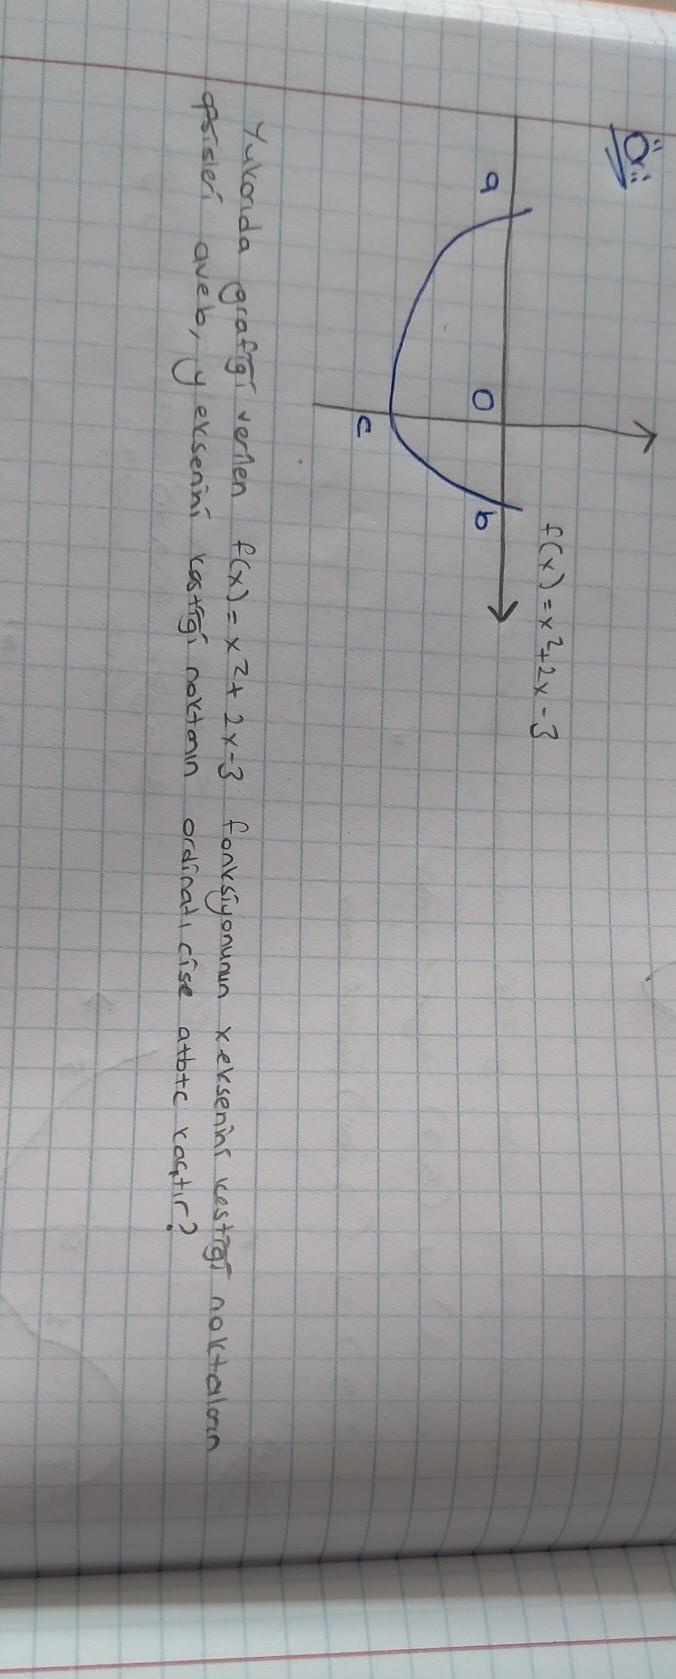 Ör:
f(x)=x²+2x-3
a
O
b
c
Yukarıda grafiği verilen f(x)=x²+2x-3 fonksiyonunun x eksenini kestiği noktaların
apsisleri a ve b, y eksenini kestiği noktanın ordinatı c ise a+b+c kaçtır?